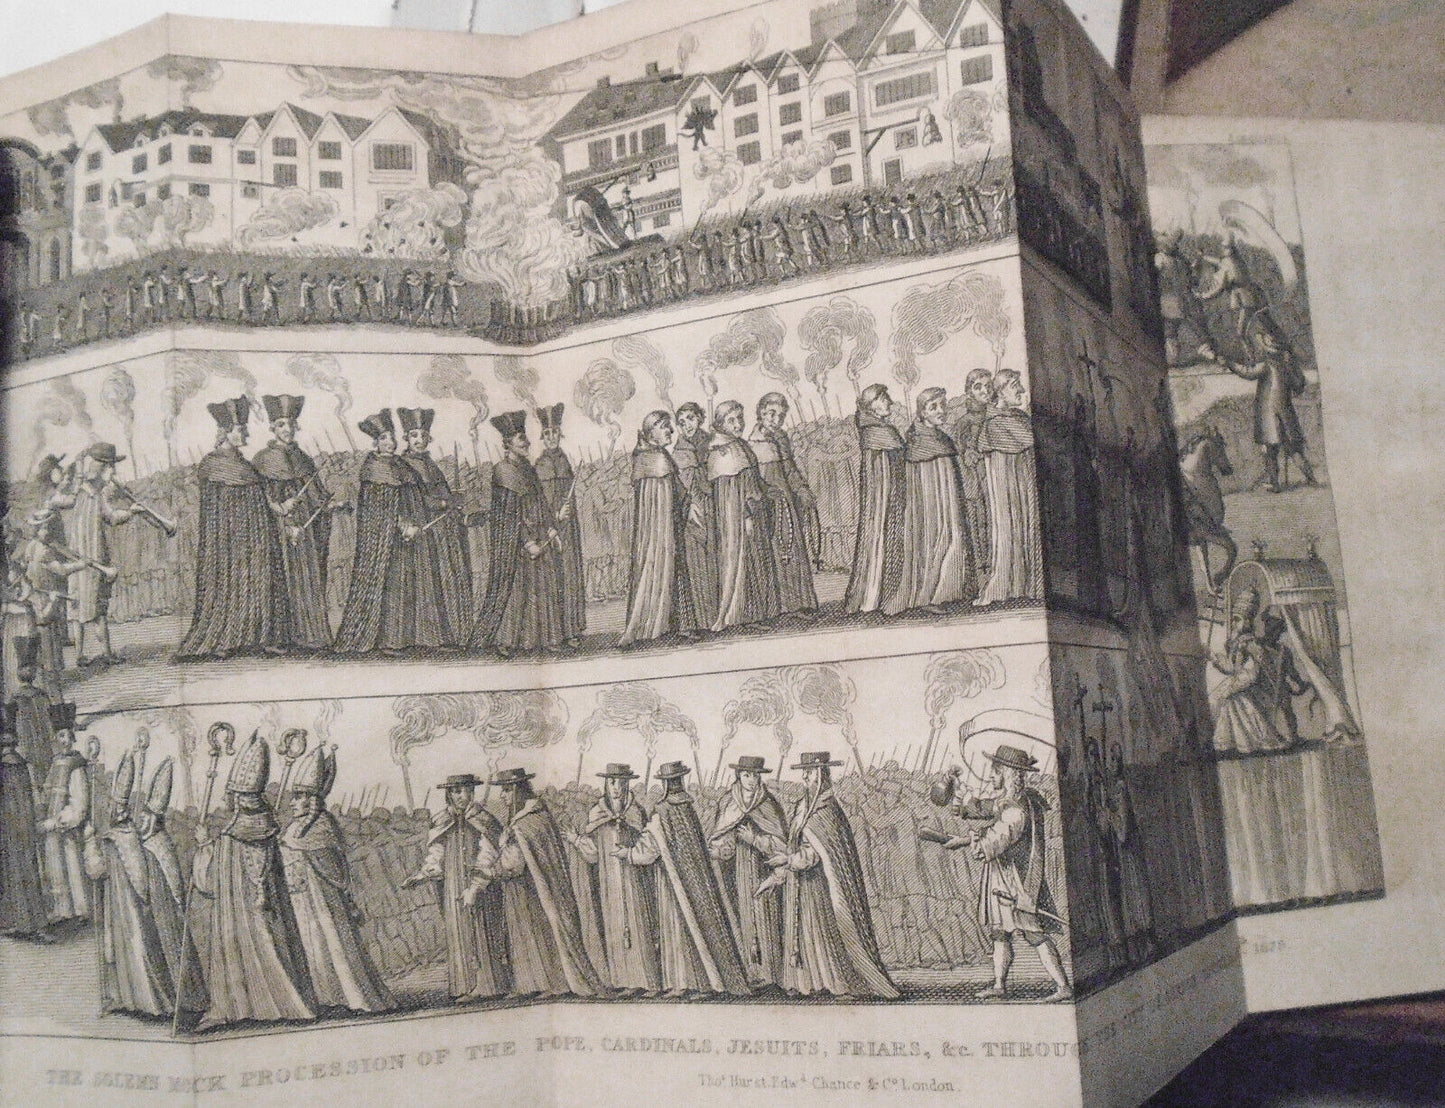 THE SOLEMN MOCK PROCESSION OF THE POPE, CARDINALS, JESUITS, FRIARS, &c. THROUGH THE CITY OF 1679.
Thos. Hurst, Edwd. Chance & Co. London.